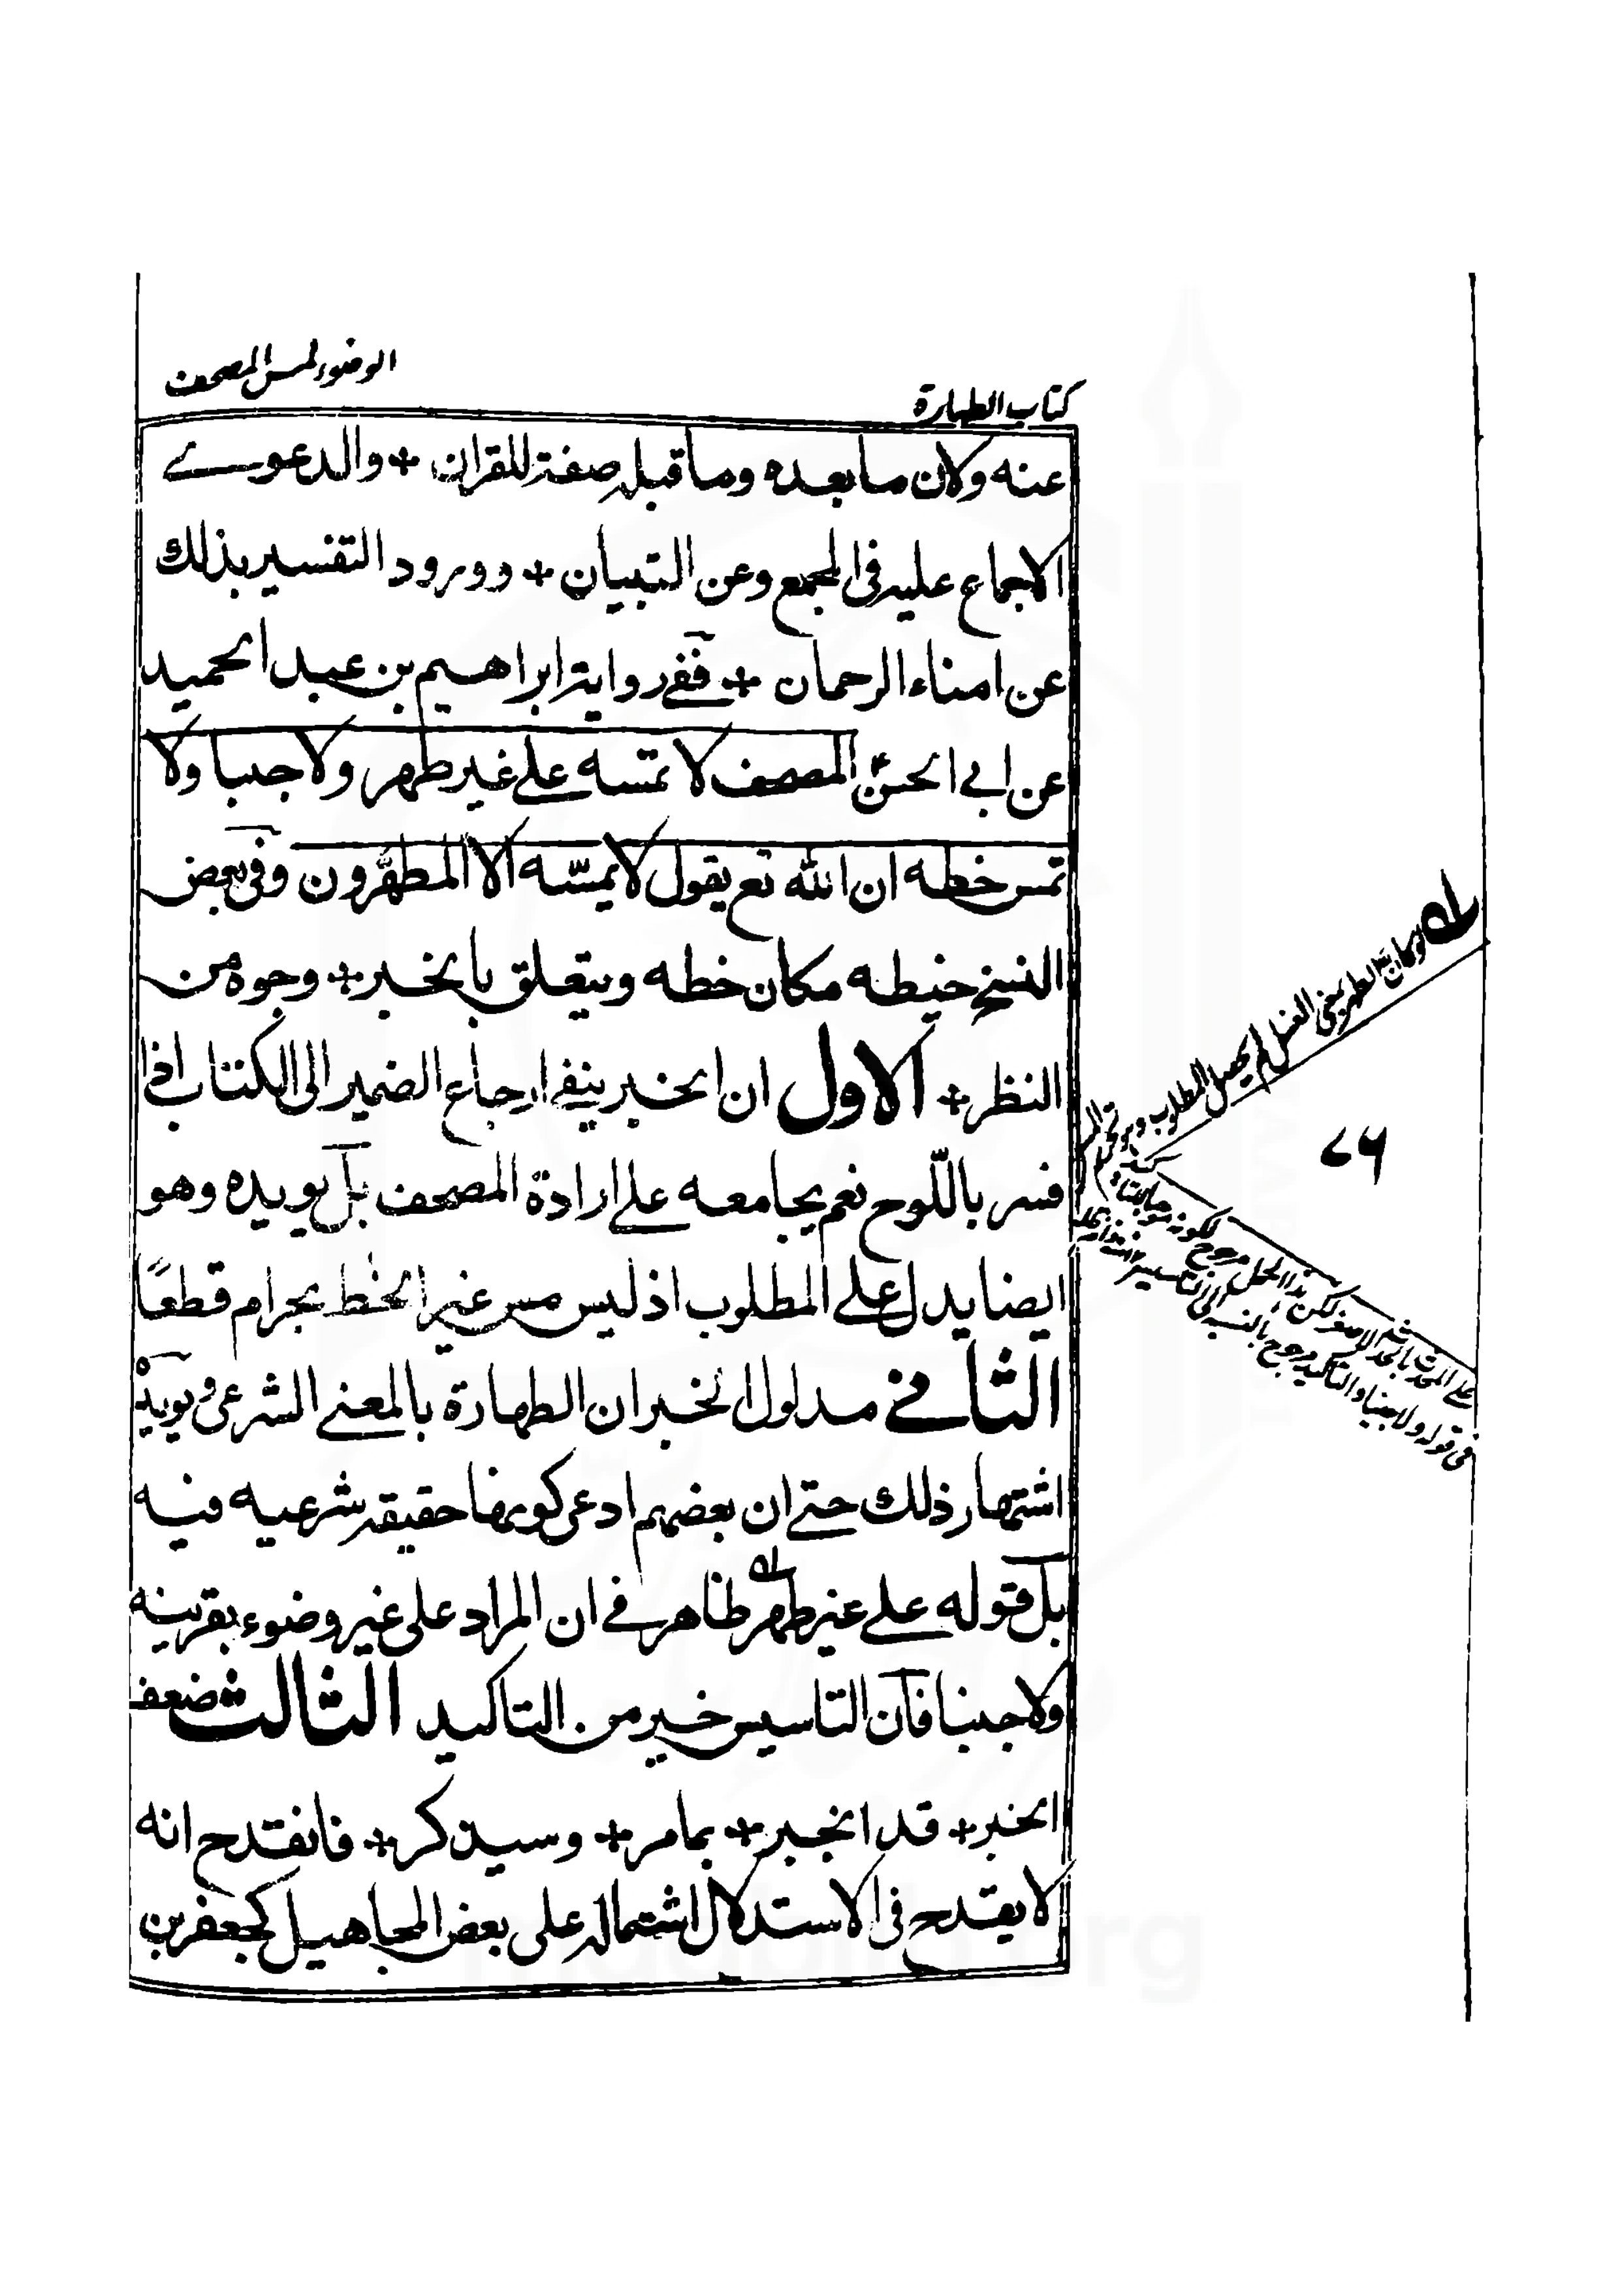 كتاب الطهارة
الوضوء لمس المصحف
عنه ولان ما بعده وما قبله صفة للقران + والدعوے
الاجماع عليه فى المجمع وعن التبيان + وورود التفسير بذلك
عن امناء الرحمان + ففے رواية ابراهيم بن عبد الحميد
عن ابے الحسنؑ المصحف لا تمسه علے غير طهر ولا جنبا ولا
تمس خطه ان الله تع يقول لا يمسّه الا المطهّرون وفى بعض
النسخ خيطه مكان خطه ويتعلق بالخبر + وجوه من
النظر + الاول ان الخبر ينفے ارجاع الضمير الى الكتاب اذا
فسر باللّوح نعم يجامعه علے ارادة المصحف بل يويده وهو
ايضا يدل علے المطلوب اذ ليس مس غير الخط بحرام قطعًا
الثانے مدلول الخبر ان الطهارة بالمعنے الشرعى ويويده
اشتهار ذلك حتے ان بعضهم ادعى كونها حقيقه شرعيه فيه
بل قوله علے غير طهر ظاهر فے ان المراد على غير وضوء بقرينه
ولا جنبا فان التاسيس خير من التاكيد الثالث ضعف
الخبر + قد انجبر + بما مر + وسيذكر + فانقدح انه
لا يقدح فى الاستدلال اشتماله على بعض المجاهيل كجعفر بن
له لو كان الطهر بمعنى الغسل لم يحصل المطلوب وهو تحريم المس
على المحدث بالحدث الاصغر لكن هذا الحمل مرجوح لكونه موجبا
فى قوله ولا جنبا والتاكيد مرجوح بالنسبة الى التاسيس
٧٦